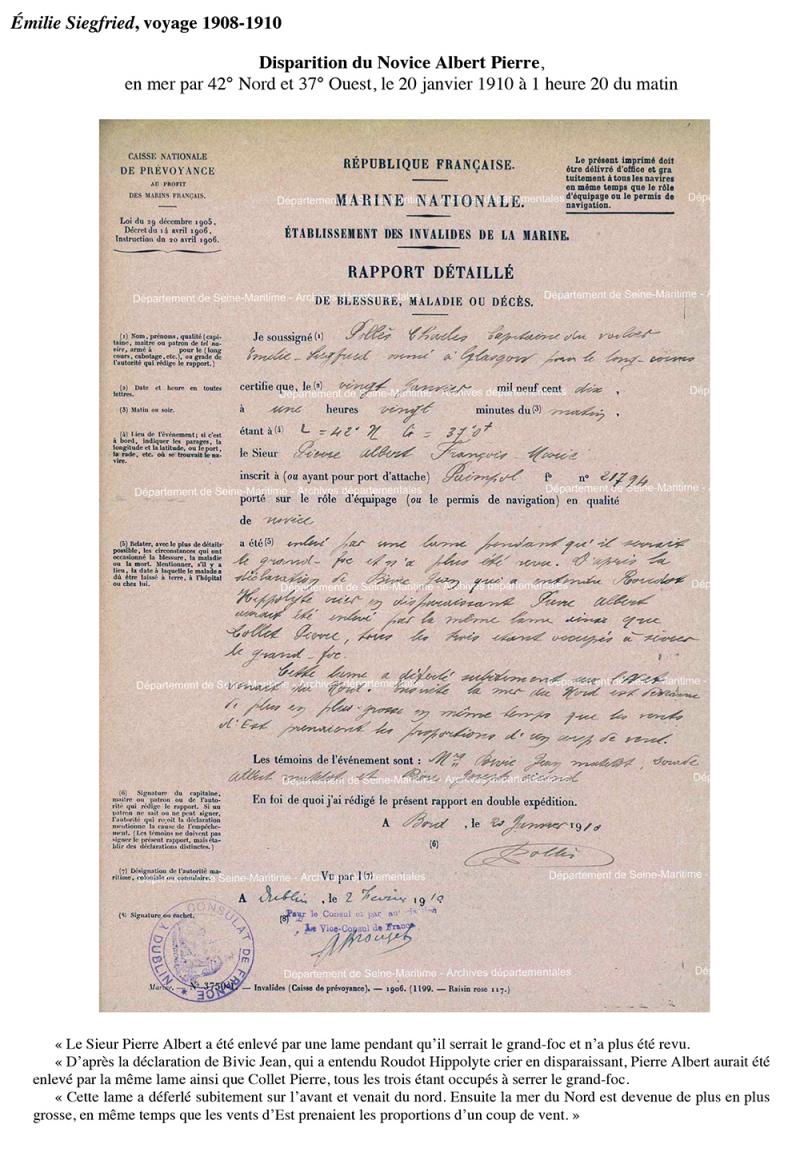 Émilie Siegfried, voyage 1908-1910
Disparition du Novice Albert Pierre,
en mer par 42° Nord et 37° Ouest, le 20 janvier 1910 à 1 heure 20 du matin
CAISSE NATIONALE
DE PRÉVOYANCE
AU PROFIT
DES MARINS FRANÇAIS.
Loi du 29 décembre 1905.
Décret du 14 avril 1906.
Instruction du 20 avril 1906.
RÉPUBLIQUE FRANÇAISE.
MARINE NATIONALE.
ÉTABLISSEMENT DES INVALIDES DE LA MARINE.
Le présent imprimé doit
être délivré d'office et gra
tuitement à tous les navires
en même temps que le rôle
d'équipage ou le permis de
navigation.
RAPPORT DÉTAILLÉ
DE BLESSURE, MALADIE OU DÉCÈS.
(1) Nom, prénoms, qualité (capi-
taine, maître ou patron de tel na-
vire, armé à pour le (long
cours, cabotage, etc.), ou grade de
l'autorité qui rédige le rapport.)
(2) Date et heure en toutes
lettres.
(3) Matin ou soir.
(4) Lieu de l'événement; si c'est
à bord, indiquer les parages, la
longitude et la latitude, ou le port,
la rade, etc. où se trouvait le na-
vire.
Je soussigné (1) Pollès Charles Capitaine du voilier
Emilie-Siegfried armé à Glasgow pour le long-cours
certifie que, le (2) vingt Janvier mil neuf cent dix,
à une heures vingt minutes du (3) matin,
étant à (4) L = 42° N G = 37°0t
le Sieur Pierre Albert François Marie
inscrit à (ou ayant pour port d'attache) Paimpol f° n° 21794
porté sur le rôle d'équipage (ou le permis de navigation) en qualité
de novice
(5) Relater, avec le plus de détails
possible, les circonstances qui ont
occasionné la blessure, la maladie
ou la mort. Mentionner, s'il y a
lieu, la date à laquelle le malade a
dû être laissé à terre, à l'hôpital
ou chez lui.
a été (5) enlevé par une lame pendant qu'il serrait
le grand-foc et n'a plus été revu. D'après la
déclaration de Bivic Jean qui a entendu Roudot
Hippolyte crier en disparaissant Pierre Albert
aurait été enlevé par la même lame ainsi que
Collet Pierre, tous les trois étant occupés à serrer
le grand-foc.
Cette lame a déferlé subitement sur l'avant et
venait du Nord. Ensuite la mer du Nord est devenue
de plus en plus grosse en même temps que les vents
d'Est prenaient les proportions d'un coup de vent.
Les témoins de l'événement sont : Mrs Bivic Jean matelot,
Albert matelot et second
En foi de quoi j'ai rédigé le présent rapport en double expédition.
A Bord, le 20 Janvier 1910
(6) Signature du capitaine,
maître ou patron ou de l'auto-
rité qui rédige le rapport. Si un
patron ne sait ou ne peut signer,
l'autorité qui reçoit la déclaration
mentionne la cause de l'empêche-
ment. (Les témoins ne doivent pas
signer le présent rapport, mais éta-
blir des déclarations distinctes.)
(6)
Pollès
(7) Désignation de l'autorité ma-
ritime, coloniale ou consulaire.
Vu par l (7)
A Dublin, le 2 Février 1910
(8) Signature ou cachet.
(8)
Pour le Consul et par
Le Vice-Consul de France
CONSULAT DE FRANCE À DUBLIN
Marine. — N° 3750 — Invalides (Caisse de prévoyance). — 1906. (1199. — Raisin rose 117.)
Département de Seine-Maritime - Archives départementales
« Le Sieur Pierre Albert a été enlevé par une lame pendant qu'il serrait le grand-foc et n'a plus été revu.
« D'après la déclaration de Bivic Jean, qui a entendu Roudot Hippolyte crier en disparaissant, Pierre Albert aurait été
enlevé par la même lame ainsi que Collet Pierre, tous les trois étant occupés à serrer le grand-foc.
« Cette lame a déferlé subitement sur l'avant et venait du nord. Ensuite la mer du Nord est devenue de plus en plus
grosse, en même temps que les vents d'Est prenaient les proportions d'un coup de vent. »